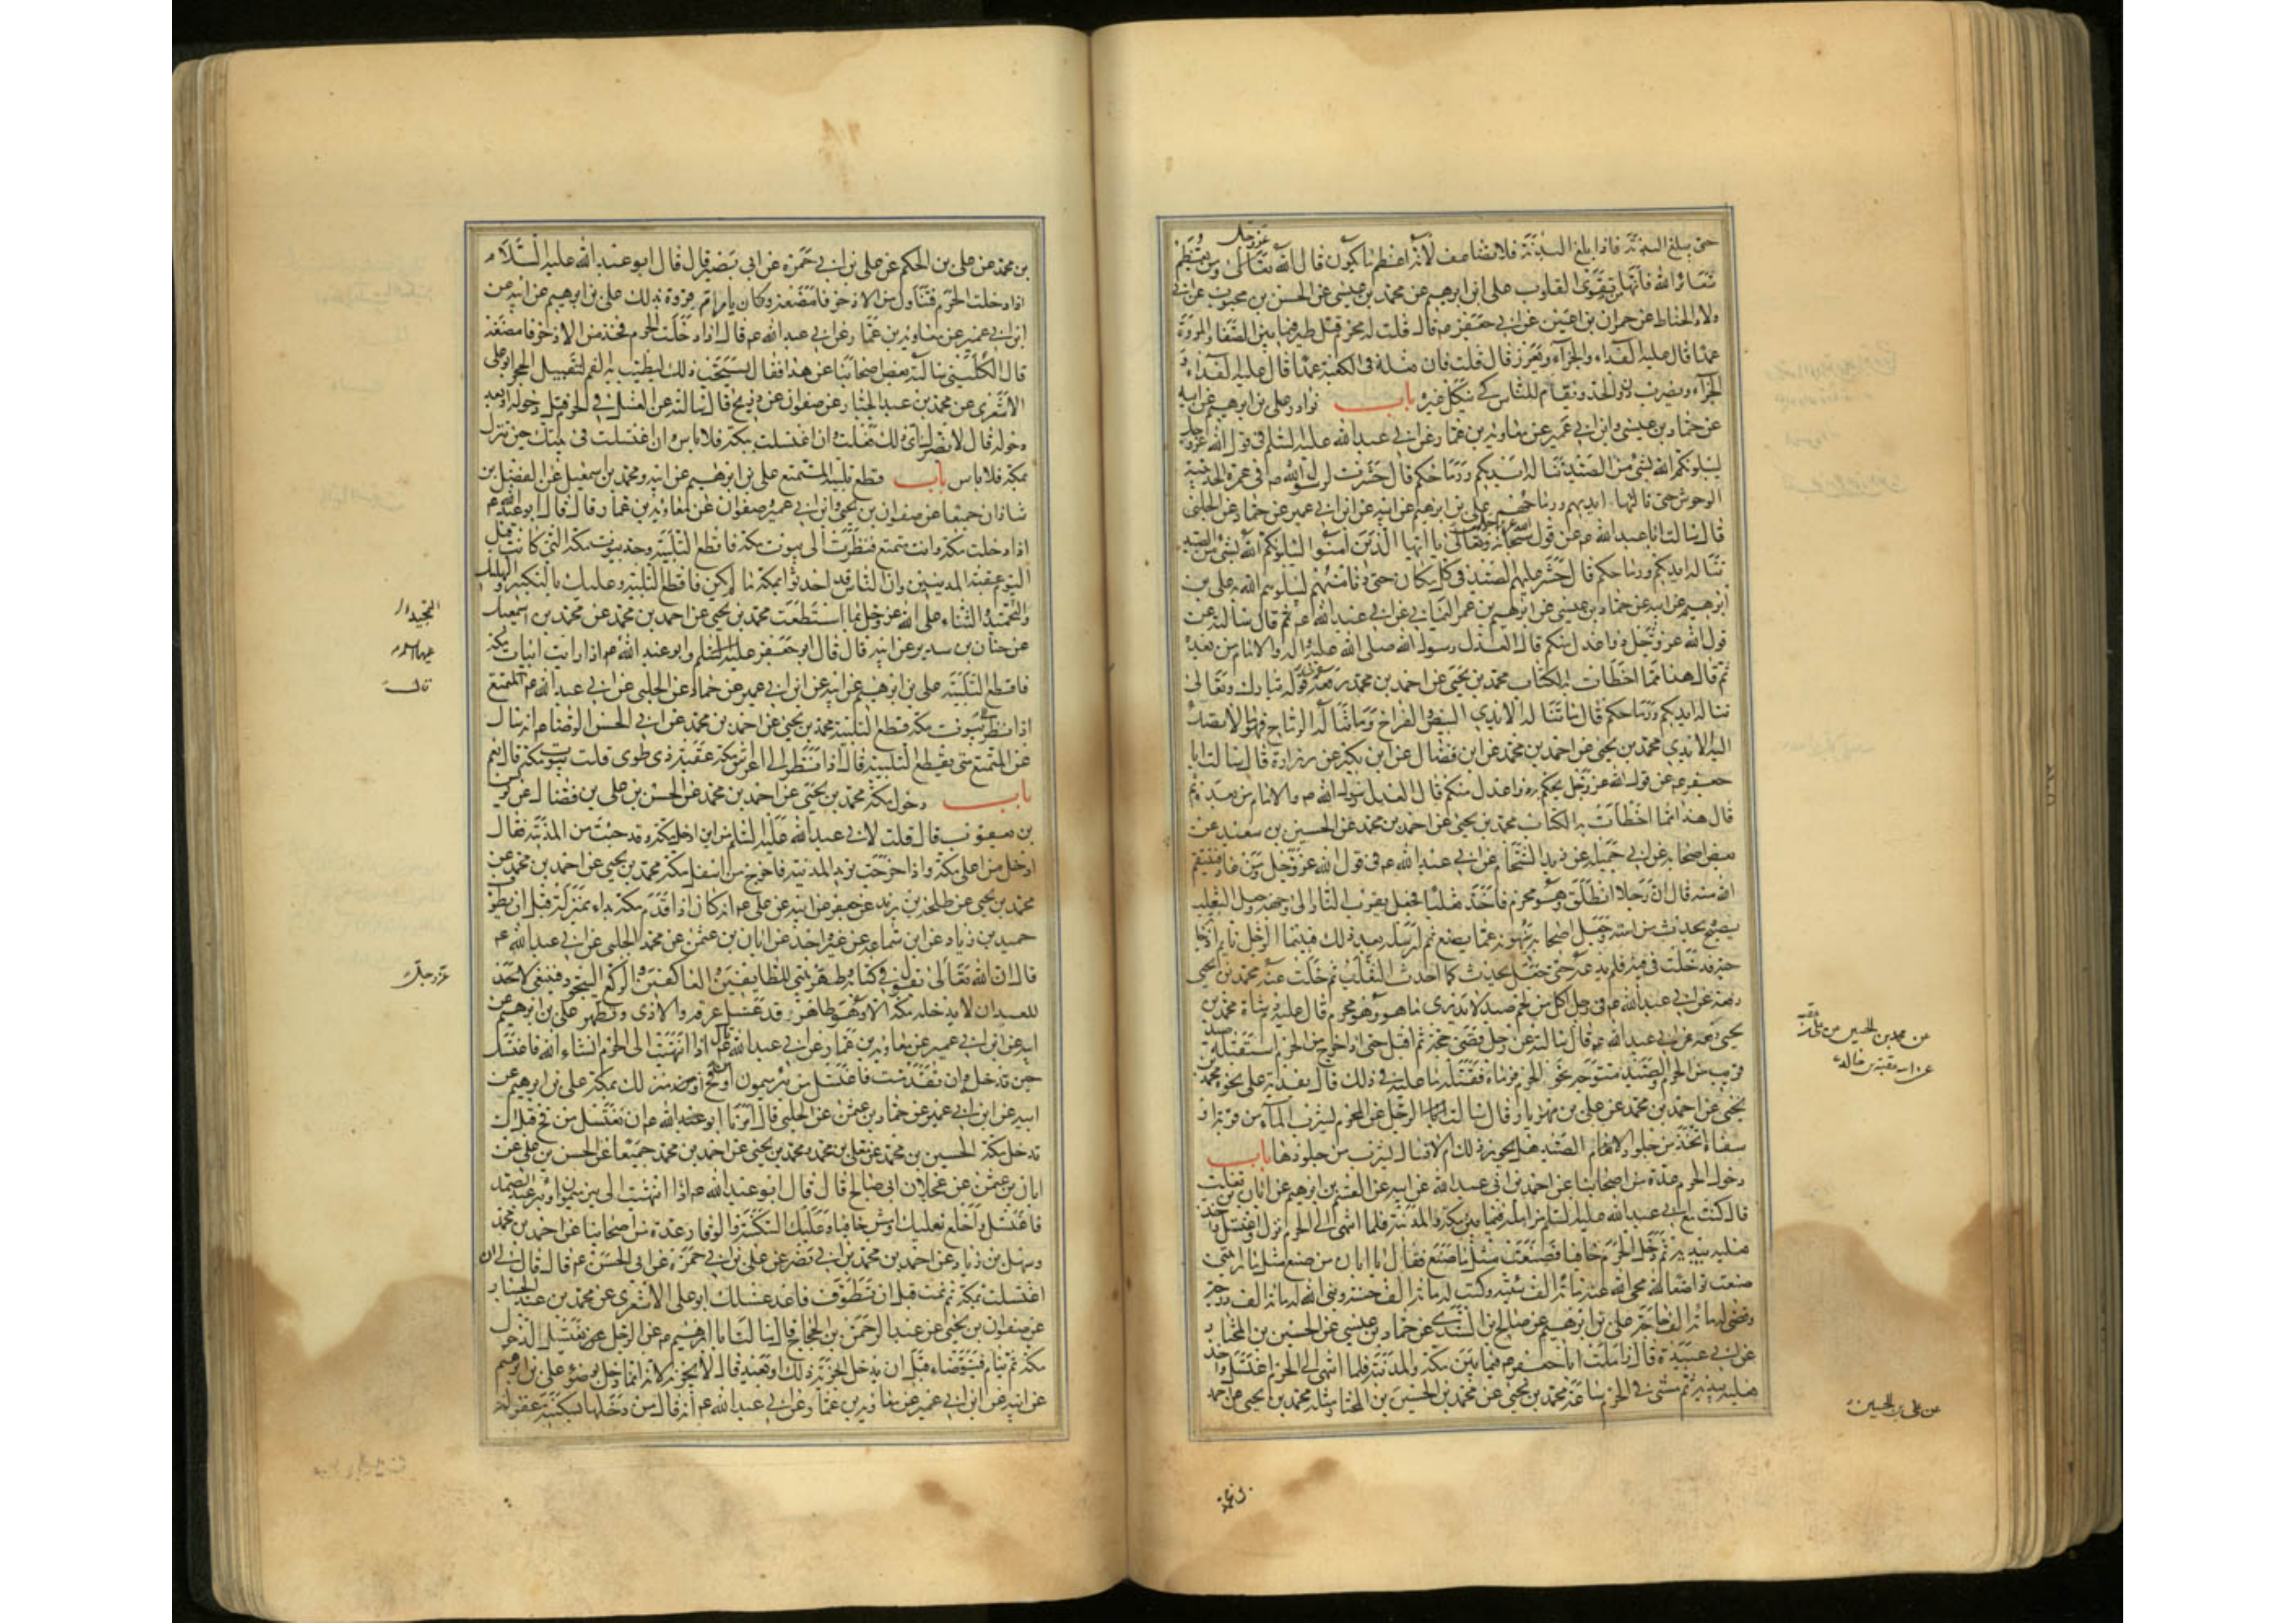 حتى يبلغ البدنة فاذا بلغ البدنة فلا تضاعف لانه اعظم ما يكون قال الله تعالى ومن يعظم
عز وجل
شعائر الله فانها من تقوى القلوب على ابن ابرهيم عن محمد بن عيسى عن الحسن بن محبوب عن ابى
ولاد الحناط عن حمران بن اعين عن ابى جعفر ع قال قلت له محرم قتل طيرا فيما بين الصفا والمروة
عمدا قال عليه الفداء والجزاء ويعزر قال قلت فان فعله فى الكعبة عمدا قال عليه الفداء و
الجزاء ويضرب دون الحد ويقام للناس كى ينكل غيره باب نوادر على بن ابرهيم عن ابيه
عن حماد بن عيسى وابن ابى عمير عن معاوية بن عمار عن ابى عبد الله عليه السلم فى قول الله عز وجل
ليبلونكم الله بشئ من الصيد تناله ايديكم ورماحكم قال حشرت لرسول الله ص فى عمرة الحديبية
الوحوش حتى نالتها ايديهم ورماحهم على بن ابرهيم عن ابيه عن ابن ابى عمير عن حماد عن الحلبى
قال سالت ابا عبد الله ع عن قول سبحانه وتعالى يا ايها الذين امنوا ليبلونكم الله بشئ من الصيد
تناله ايديكم ورماحكم قال حشر عليهم الصيد فى كل مكان حتى دنا منهم ليبلوهم الله به على بن
ابرهيم عن ابيه عن حماد بن عيسى عن ابرهيم بن عمر اليمانى عن ابى عبد الله ع قال سالته عن
قول الله عز وجل ذوا عدل منكم قال العدل رسول الله صلى الله عليه واله والامام من بعده
ثم قال هذا مما اخطات به الكتاب محمد بن يحيى عن احمد بن محمد رفعه فى قوله تبارك وتعالى
تناله ايديكم ورماحكم قال ما تناله الايدي البيض والفراخ وما تناله الرماح فهو ما لا تصل
اليه الايدي محمد بن يحيى عن احمد بن محمد عن ابن فضال عن ابن بكير عن زرارة قال سالت ابا
جعفر ع عن قول الله عز وجل يحكم به ذوا عدل منكم قال العدل رسول الله ص والامام من بعده ثم
قال هذا مما اخطأت به الكتاب محمد بن يحيى عن احمد بن محمد عن الحسين بن سعيد عن
بعض اصحابه عن ابى جميله عن زيد الشحام عن ابى عبد الله ع فى قول الله عز وجل ومن عاد فينتقم
الله منه قال ان رجلا انطلق وهو محرم فاخذ ثعلبا فجعل يقرب النار الى وجهه وجعل الثعلب
يصيح ويحدث من استه وجعل اصحابه ينهونه عما يصنع ثم ارسله بعد ذلك فبينما الرجل نايم اذ جا
حية فدخلت فى فيه فلم تدعه حتى جعل يحدث كما احدث الثعلب ثم خلت عنه محمد بن يحيى
رفعه عن ابى عبد الله ع فى رجل اكل من لحم صيد لا يدرى ما هو وهو محرم قال عليه دم شاة محمد بن
يحيى رفعه عن ابى عبد الله ع قال سالته عن رجل قضى حجه ثم اقبل حتى اذا خرج من الحرم استقبله صيد
قريب من الحرم والصيد متوجه نحو الحرم فرماه فقتله ما عليه فى ذلك قال يفديه على نحوه محمد بن
يحيى عن احمد بن محمد عن على بن مهزيار قال سالت الرجل عن المحرم يشرب الماء من قربة او
سقاء اتخذ من جلود الصيد هل يجوز ذلك ام لا فقال يشرب من جلودها باب
دخول الحرم عدة من اصحابنا عن احمد بن ابى عبد الله عن ابيه عن القسم بن ابرهيم عن ابان بن تغلب
قال كنت مع ابى عبد الله عليه السلم مزامله فيما بين مكة والمدينة فلما انتهى الى الحرم نزل واغتسل واخذ
نعليه بيديه ثم دخل الحرم حافيا فصنعت مثل ما صنع فقال يا ابان من صنع مثل ما رايتنى
صنعت تواضعا لله محى الله عنه مائة الف سيئة وكتب له مائة الف حسنة وبنى الله له مائة الف درجة
وقضى له مائة الف حاجة على بن ابرهيم عن صالح بن السندى عن حماد بن عيسى عن الحسين بن المختار
عن ابى عبيدة قال زاملت ابا جعفر ع فيما بين مكة والمدينة فلما انتهى الى الحرم اغتسل واخذ
نعليه بيديه ثم مشى فى الحرم ساعة محمد بن يحيى عن محمد بن الحسين بن المختار مثله محمد بن يحيى عن احمد
عن محمد بن الحسين عن على بن
عن عقبة بن خالد
عن على بن الحسين
بن محمد عن على بن الحكم عن على بن ابى حمزه عن ابى بصير قال قال ابو عبد الله عليه السلام
اذا دخلت الحرم فتناول من الاذخر فامضغه وكان يامر ام فروة بذلك على بن ابرهيم عن ابيه عن
ابن ابى عمير عن معاوية بن عمار عن ابى عبد الله ع قال اذا دخلت الحرم فخذ من الاذخر فامضغه
قال الكلينى سالت بعض اصحابنا عن هذا فقال يستحب ذلك ليطيب به الفم لتقبيل الحجر ابو على
الاشعرى عن محمد بن عبد الجبار عن صفوان عن ذريح قال سالته عن الغسل فى الحرم قبل دخوله او بعد
دخوله قال لا يضرك اى ذلك فعلت وان اغتسلت بمكة فلا باس وان اغتسلت فى بيتك حين تنزل
بمكة فلا باس باب قطع تلبية المتمتع على بن ابرهيم عن ابيه ومحمد بن اسمعيل عن الفضل بن
شاذان جميعا عن صفوان بن يحيى وابن ابى عمير وصفوان عن معاوية بن عمار قال قال ابو عبد الله ع
اذا دخلت مكة وانت متمتع فنظرت الى بيوت مكة فاقطع التلبية وحد بيوت مكة التى كانت قبل
اليوم عقبة المدنيين وان الناس قد احدثوا بمكة ما لم يكن فاقطع التلبية وعليك بالتكبير والتهليل
والتحميد والثناء على الله عز وجل بما استطعت محمد بن يحيى عن احمد بن محمد عن محمد بن اسمعيل
عن حنان بن سدير عن ابيه قال قال ابو جعفر عليه السلم وابو عبد الله ع اذا رايت ابيات مكة
فاقطع التلبية على بن ابرهيم عن ابيه عن ابن ابى عمير عن حماد عن الحلبى عن ابى عبد الله ع المتمتع
اذا نظر الى بيوت مكة قطع التلبية محمد بن يحيى عن احمد بن محمد عن ابى الحسن الرضا ع انه سال
عن المتمتع متى يقطع التلبية قال اذا نظر الى اعراش مكة عقبة ذى طوى قلت بيوت مكة قال نعم
باب دخول مكة محمد بن يحيى عن احمد بن محمد عن الحسن بن على بن فضال عن يونس
بن يعقوب قال قلت لابى عبد الله عليه السلم من اين ادخل مكة وقد جئت من المدينة فقال
ادخل من اعلى مكة واذا خرجت تريد المدينة فاخرج من اسفل مكة محمد بن يحيى عن احمد بن محمد عن
محمد بن يحيى عن طلحة بن زيد عن جعفر عن ابيه عن على ع انه كان اذا قدم مكة بداء بمنزله قبل ان يطوف
حميد بن زياد عن ابن سماعه عن غير واحد عن ابان بن عثمن عن محمد الحلبى عن ابى عبد الله ع
قال ان الله تعالى يقول فى كتابه طهر بيتى للطايفين والعاكفين والركع السجود فينبغى
للعبد ان لا يدخل مكة الا وهو طاهر قد غسل عرقه والاذى وتطهر على بن ابرهيم عن
ابيه عن ابن ابى عمير عن معاوية بن عمار عن ابى عبد الله ع قال اذا انتهيت الى الحرم انشاء الله فاغتسل
حين تدخل وان تقدمت فاغتسل من بئر ميمون او من فخ او من منزلك بمكة على بن ابرهيم عن
ابيه عن ابن ابى عمير عن حماد بن عثمن عن الحلبى قال امرنا ابو عبد الله ع ان نغتسل من فخ قبل ان
ندخل مكة الحسين بن محمد عن معلى بن محمد ومحمد بن يحيى عن احمد بن محمد جميعا عن الحسن بن على عن
ابان بن عثمن عن عجلان ابى صالح قال قال ابو عبد الله ع اذا انتهيت الى بئر ميمون او بئر عبد الصمد
فاغتسل واخلع نعليك وامش حافيا وعليك السكينة والوقار عدة من اصحابنا عن احمد بن محمد
وسهل بن زياد عن احمد بن محمد بن ابى نصر عن على بن ابى حمزة عن ابى الحسن ع قال قال لى ان
اغتسلت بمكة ثم نمت قبل ان تطوف فاعد غسلك ابو على الاشعرى عن محمد بن عبد الجبار
عن صفوان بن يحيى عن عبد الرحمن بن الحجاج قال سالت ابا ابرهيم ع عن الرجل يغتسل لدخول
مكة ثم ينام فيتوضاء قبل ان يدخل ايجزيه ذلك او يعيد قال لا يجزيه لانه انما دخل بوضوء على بن ابرهيم
عن ابيه عن ابن ابى عمير عن معاوية بن عمار عن ابى عبد الله ع انه قال من دخلها بسكينة غفر له
التمجيد
عليهما السلام
قال
عز وجل